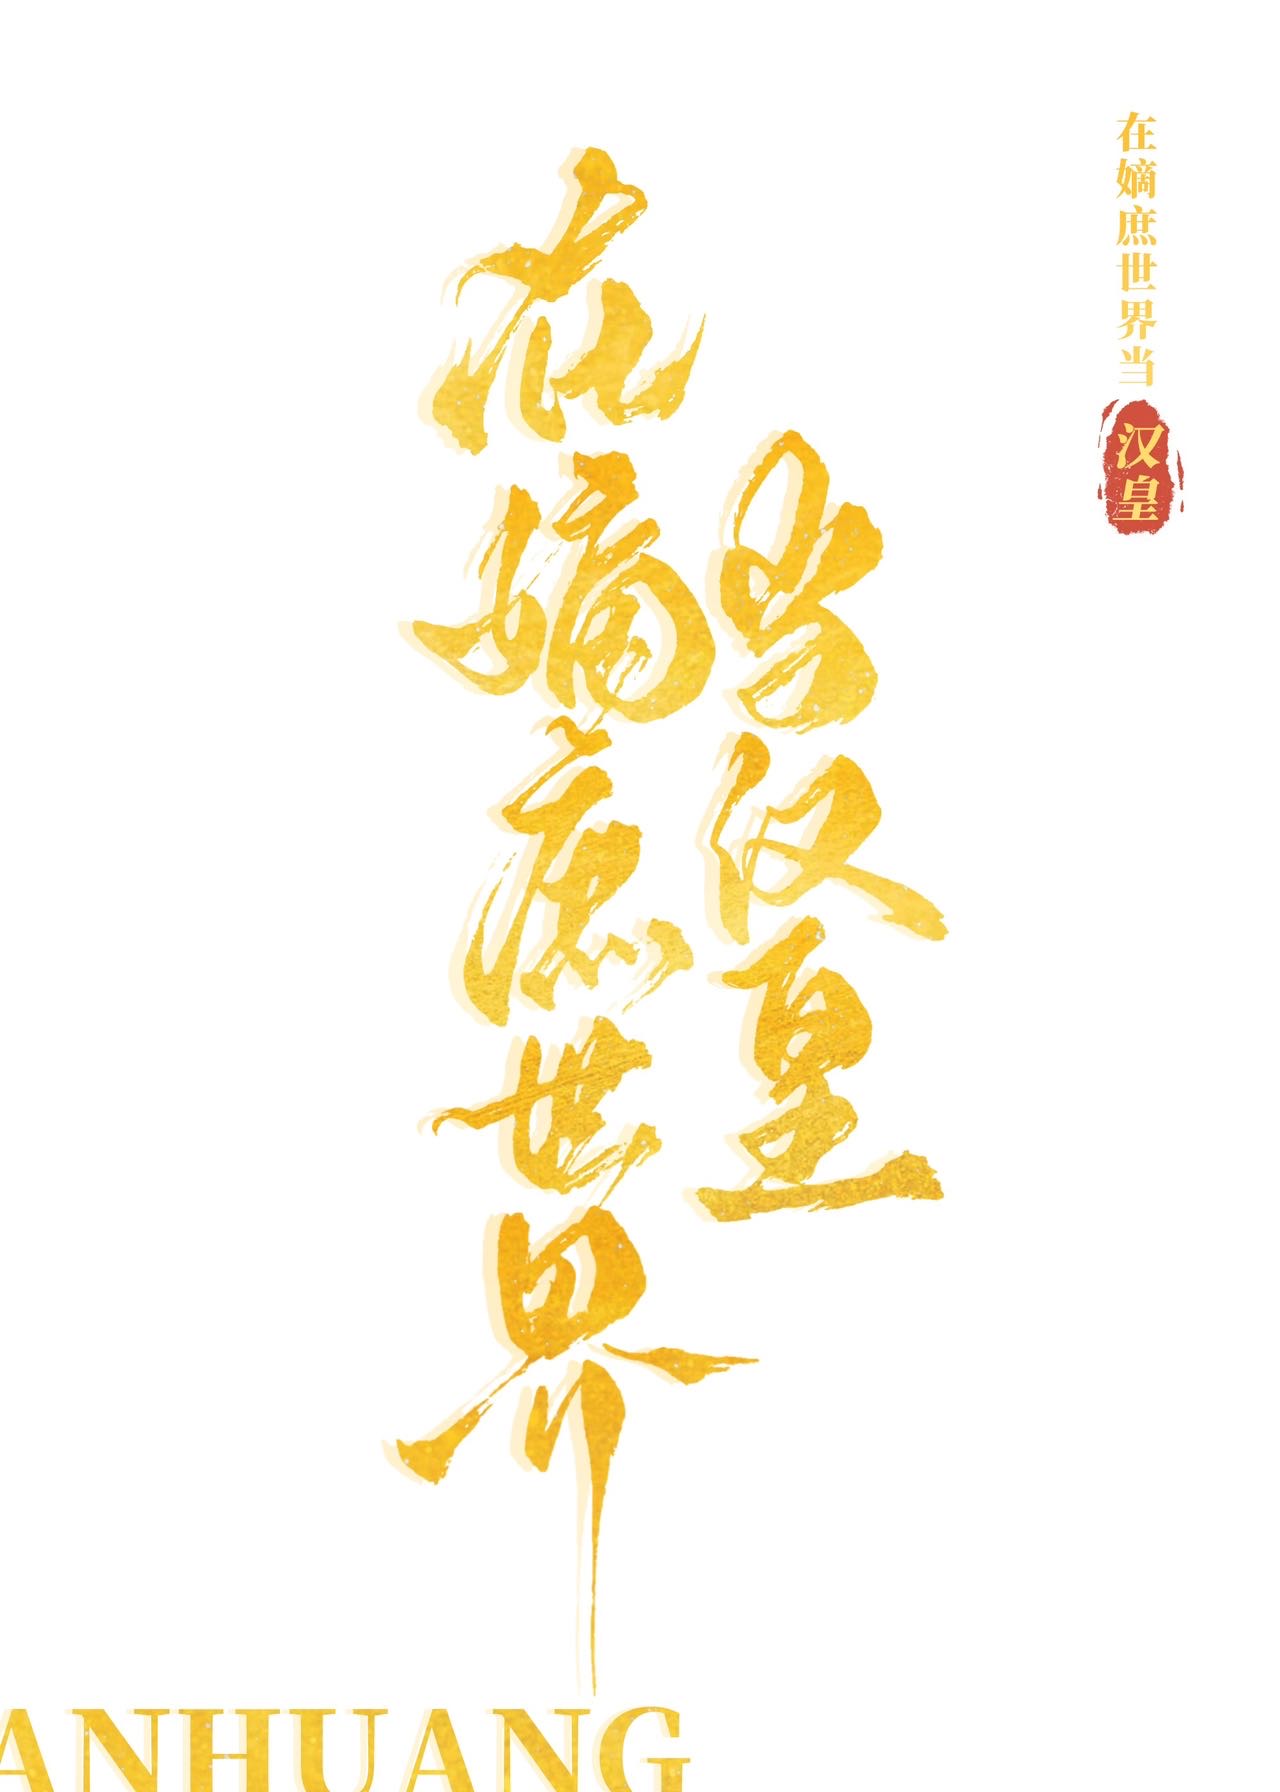 在嫡庶世界
当汉皇
在嫡庶世界当
汉皇
ANHUANG